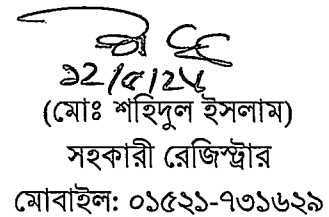 ১২/৫/২৫
(মোঃ শহিদুল ইসলাম)
সহকারী রেজিস্ট্রার
মোবাইল: ০১৫২১-৭৩১৬২৯